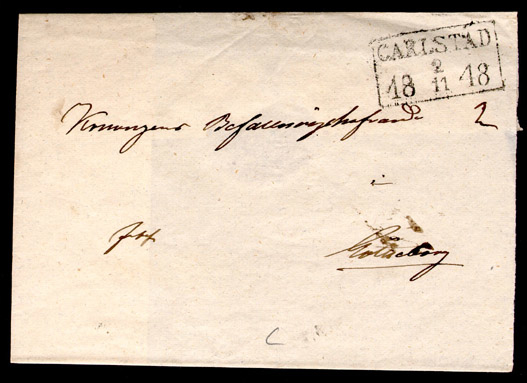 CARLSTAD
2
18 11 18
Konungens Befallningshafvande
i
Götheborg